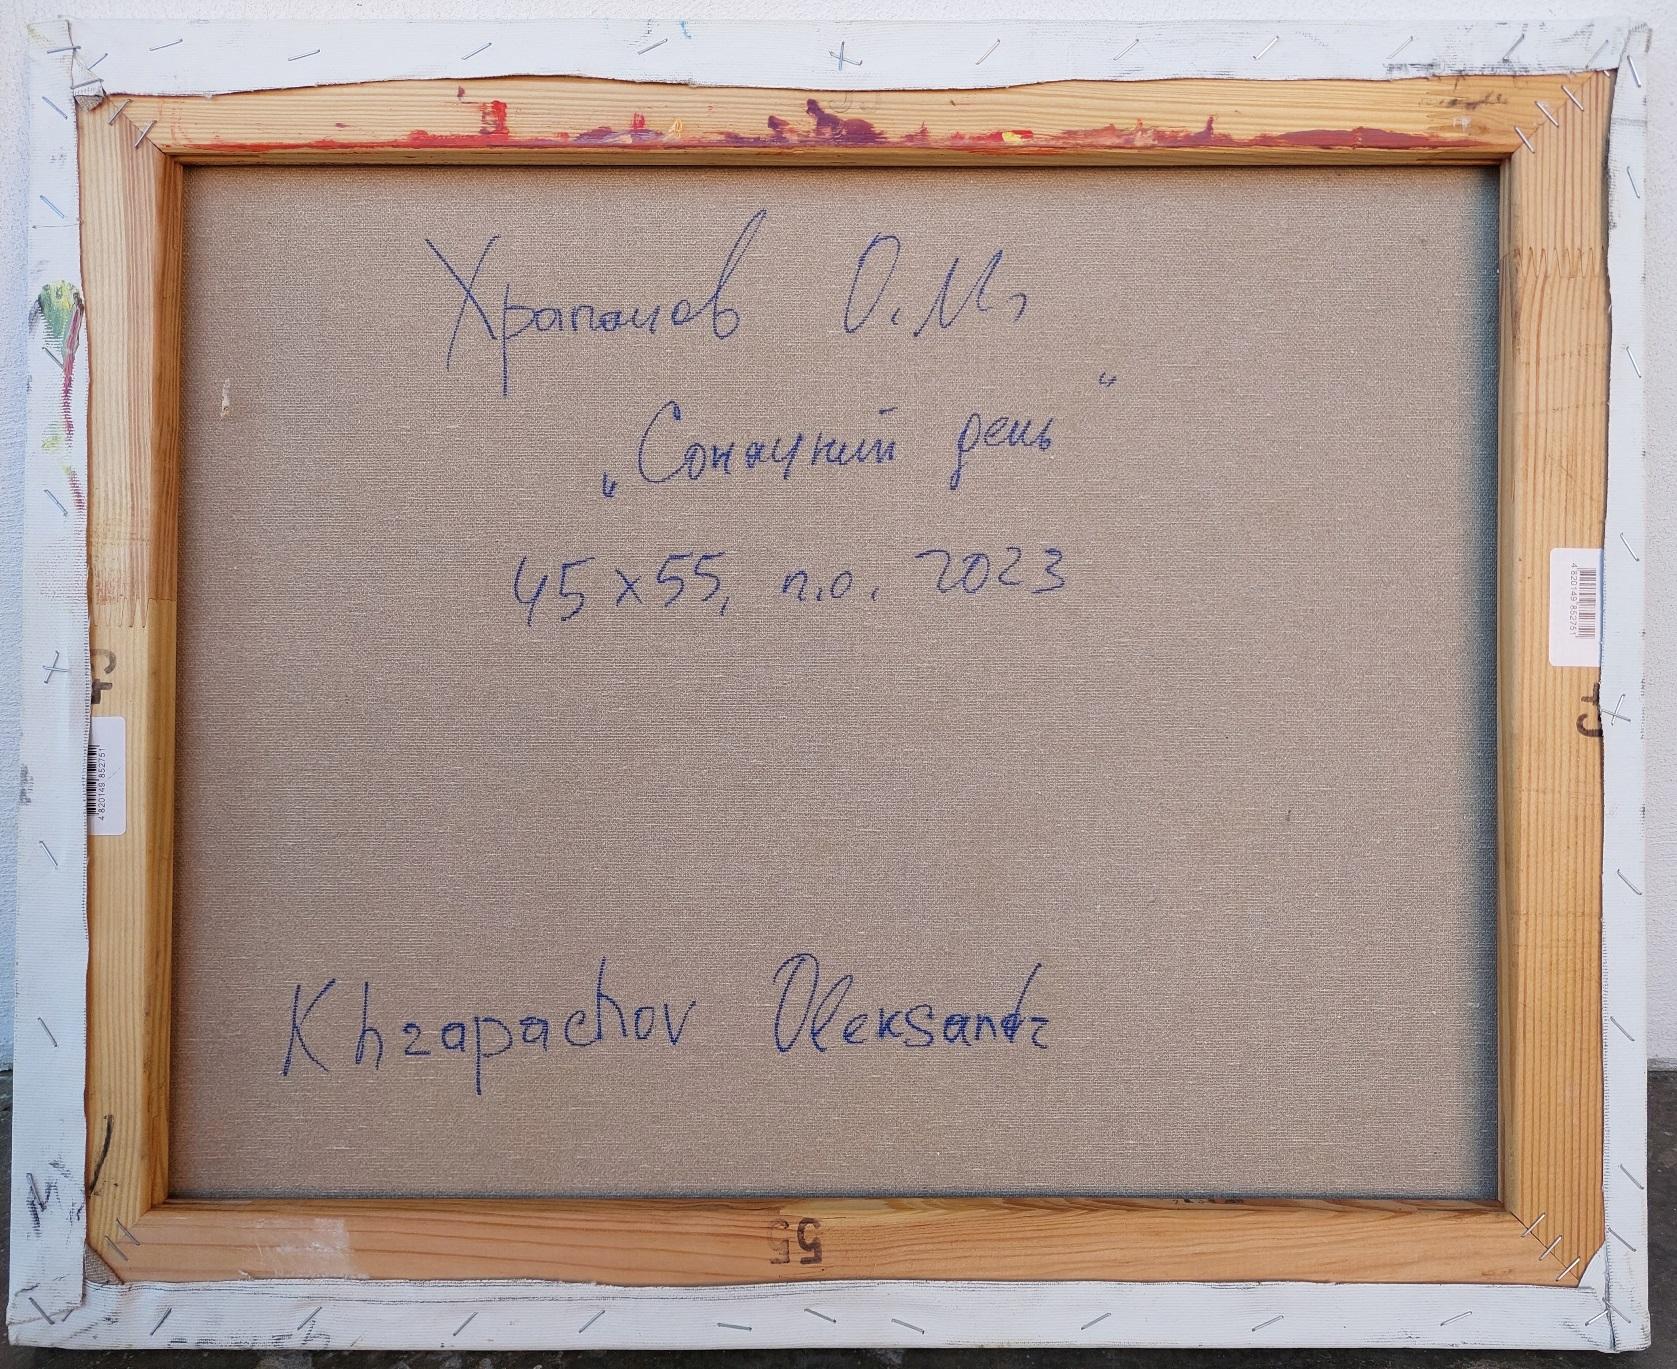 Храпачов О.М.
„Сонячний день“
45x55, п.о. 2023
4 820149 852751
45
45
4 820149 852751
Khrapachov Oleksandr
55